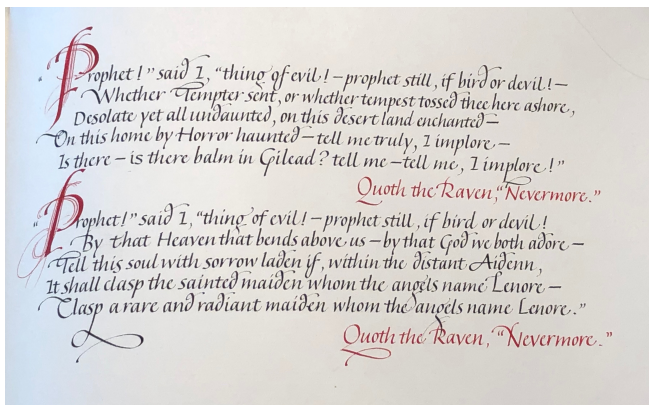 "Prophet!" said I, "thing of evil! – prophet still, if bird or devil! –
Whether Tempter sent, or whether tempest tossed thee here ashore,
Desolate yet all undaunted, on this desert land enchanted –
On this home by Horror haunted – tell me truly, I implore –
Is there – is there balm in Gilead? tell me – tell me, I implore!"
Quoth the Raven, "Nevermore."
"Prophet!" said I, "thing of evil! – prophet still, if bird or devil!
By that Heaven that bends above us – by that God we both adore –
Tell this soul with sorrow laden if, within the distant Aidenn,
It shall clasp the sainted maiden whom the angels name Lenore –
Clasp a rare and radiant maiden whom the angels name Lenore."
Quoth the Raven, "Nevermore."